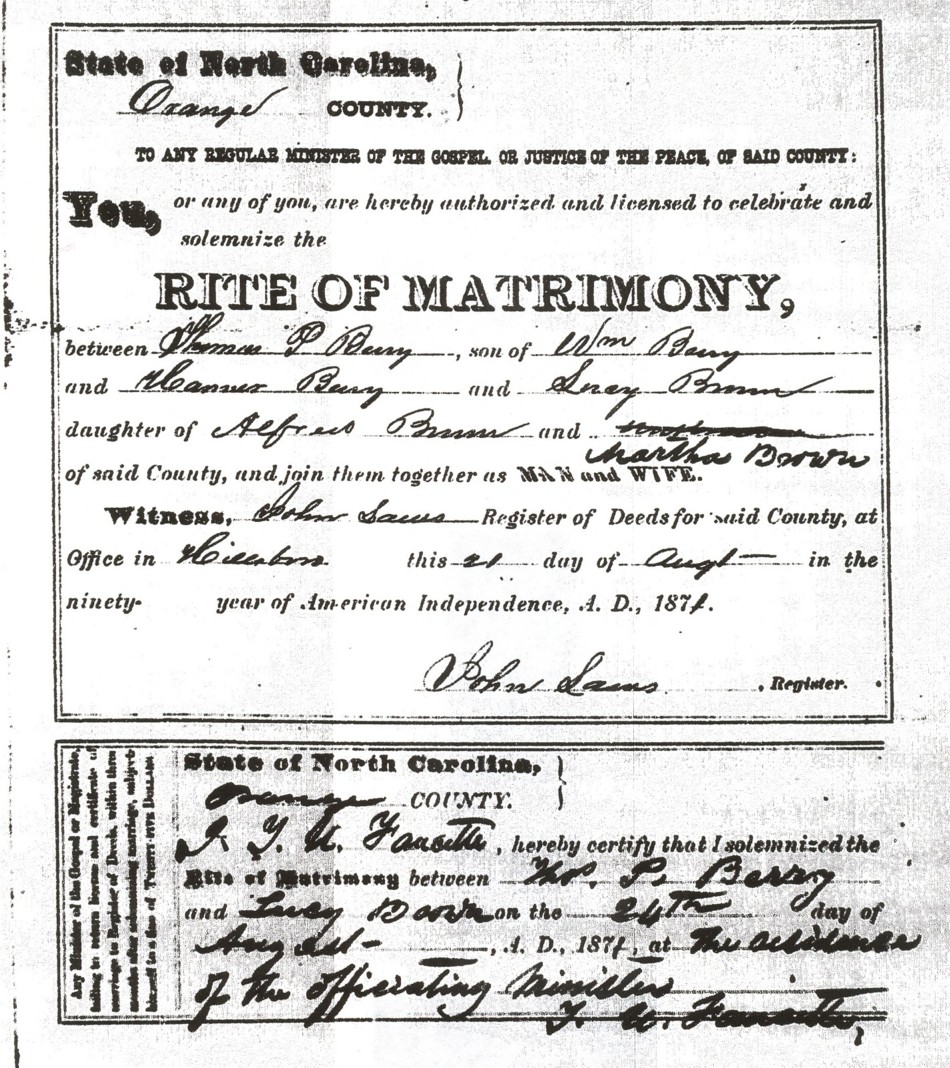 State of North Carolina,
Orange COUNTY.
TO ANY REGULAR MINISTER OF THE GOSPEL, OR JUSTICE OF THE PEACE, OF SAID COUNTY:
You, or any of you, are hereby authorized and licensed to celebrate and
solemnize the
RITE OF MATRIMONY,
between Thomas P Berry, son of Wm Berry
and Berry and Lucy Brown
daughter of Alfred Brown and
Martha Brown
of said County, and join them together as MAN and WIFE.
Witness, John Laws Register of Deeds for said County, at
Office in Hillsboro this 21 day of Augt in the
ninety- year of American Independence, A. D., 1871.
John Laws, Register.
State of North Carolina,
Orange COUNTY.
I T. U. Faucette, hereby certify that I solemnized the
Rite of Matrimony between Thos. P. Berry
and Lucy Brown on the 24th day of
August, A. D., 1871, at the residence
of the officiating Minister
T. U. Faucette,
Any Minister of the Gospel or Magistrate,
failing to return license and certificate of
marriage to Register of Deeds, within three
months after solemnizing marriage, subject
himself to a fine of TWENTY-FIVE DOLLARS.